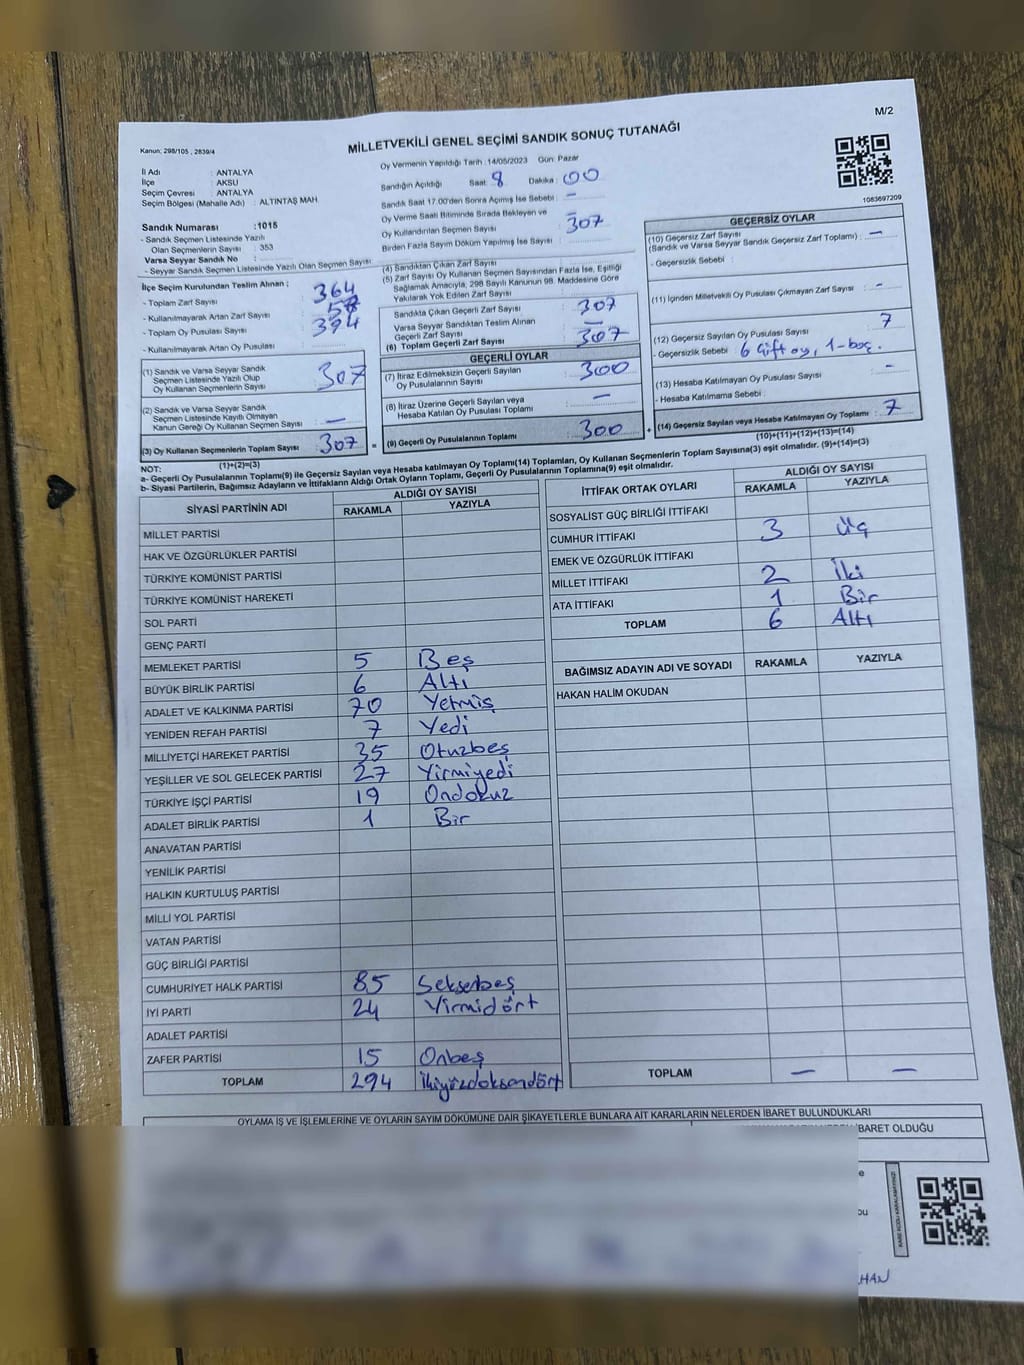 M/2
MİLLETVEKİLİ GENEL SEÇİMİ SANDIK SONUÇ TUTANAĞI
Kanun; 298/105 , 2839/4
İl Adı : ANTALYA
İlçe : AKSU
Seçim Çevresi : ANTALYA
Seçim Bölgesi (Mahalle Adı) : ALTINTAŞ MAH.
Sandık Numarası :1015
- Sandık Seçmen Listesinde Yazılı
Olan Seçmenlerin Sayısı : 353
Varsa Seyyar Sandık No :
- Seyyar Sandık Seçmen Listesinde Yazılı Olan Seçmen Sayısı:
Oy Vermenin Yapıldığı Tarih :14/05/2023 Gün: Pazar
Sandığın Açıldığı Saat: 8 Dakika : 00
Sandık Saat 17.00'den Sonra Açımış İse Sebebi : -
Oy Verme Saati Bitiminde Sırada Bekleyen ve
Oy Kullandırılan Seçmen Sayısı : -
Birden Fazla Sayım Döküm Yapılmış İse Sayısı :
307
1083697209
İlçe Seçim Kurulundan Teslim Alınan ;
- Toplam Zarf Sayısı : 364
- Kullanılmayarak Artan Zarf Sayısı :
- Toplam Oy Pusulası Sayısı : 394
- Kullanılmayarak Artan Oy Pusulası :
(1) Sandık ve Varsa Seyyar Sandık
Seçmen Listesinde Yazılı Olup
Oy Kullanan Seçmenlerin Sayısı : 307
(2) Sandık ve Varsa Seyyar Sandık
Seçmen Listesinde Kayıtlı Olmayan
Kanun Gereği Oy Kullanan Seçmen Sayısı : -
(3) Oy Kullanan Seçmenlerin Toplam Sayısı : 307
(1)+(2)=(3)
(4) Sandıktan Çıkan Zarf Sayısı :
(5) Zarf Sayısı Oy Kullanan Seçmen Sayısından Fazla İse, Eşitliği
Sağlamak Amacıyla, 298 Sayılı Kanunun 98. Maddesine Göre
Yakılarak Yok Edilen Zarf Sayısı :
Sandıkta Çıkan Geçerli Zarf Sayısı : 307
Varsa Seyyar Sandıktan Teslim Alınan
Geçerli Zarf Sayısı : -
(6) Toplam Geçerli Zarf Sayısı : 307
GEÇERLİ OYLAR
(7) İtiraz Edilmeksizin Geçerli Sayılan
Oy Pusulalarının Sayısı : 300
(8) İtiraz Üzerine Geçerli Sayılan veya
Hesaba Katılan Oy Pusulası Toplamı : -
= (9) Geçerli Oy Pusulalarının Toplamı : 300
GEÇERSİZ OYLAR
(10) Geçersiz Zarf Sayısı
(Sandık ve Varsa Seyyar Sandık Geçersiz Zarf Toplamı) : -
- Geçersizlik Sebebi :
(11) İçinden Milletvekili Oy Pusulası Çıkmayan Zarf Sayısı : -
(12) Geçersiz Sayılan Oy Pusulası Sayısı : 7
- Geçersizlik Sebebi : 6 Çift oy, 1-boş.
(13) Hesaba Katılmayan Oy Pusulası Sayısı : -
- Hesaba Katılmama Sebebi :
+ (14) Geçersiz Sayılan veya Hesaba Katılmayan Oy Toplamı : 7
(10)+(11)+(12)+(13)=(14)
NOT:
a- Geçerli Oy Pusulalarının Toplamı(9) ile Geçersiz Sayılan veya Hesaba katılmayan Oy Toplamı(14) Toplamları, Oy Kullanan Seçmenlerin Toplam Sayısına(3) eşit olmalıdır. (9)+(14)=(3)
b- Siyasi Partilerin, Bağımsız Adayların ve İttifakların Aldığı Ortak Oyların Toplamı, Geçerli Oy Pusulalarının Toplamına(9) eşit olmalıdır.
SİYASİ PARTİNİN ADI ALDIĞI OY SAYISI
RAKAMLA YAZIYLA
MİLLET PARTİSİ
HAK VE ÖZGÜRLÜKLER PARTİSİ
TÜRKİYE KOMÜNİST PARTİSİ
TÜRKİYE KOMÜNİST HAREKETİ
SOL PARTİ
GENÇ PARTİ
MEMLEKET PARTİSİ 5 Beş
BÜYÜK BİRLİK PARTİSİ 6 Altı
ADALET VE KALKINMA PARTİSİ 70 Yetmiş
YENİDEN REFAH PARTİSİ 7 Yedi
MİLLİYETÇİ HAREKET PARTİSİ 35 Otuzbeş
YEŞİLLER VE SOL GELECEK PARTİSİ 27 Yirmiyedi
TÜRKİYE İŞÇİ PARTİSİ 19 Ondokuz
ADALET BİRLİK PARTİSİ 1 Bir
ANAVATAN PARTİSİ
YENİLİK PARTİSİ
HALKIN KURTULUŞ PARTİSİ
MİLLİ YOL PARTİSİ
VATAN PARTİSİ
GÜÇ BİRLİĞİ PARTİSİ
CUMHURİYET HALK PARTİSİ 85 Seksenbeş
İYİ PARTİ 24 Yirmidört
ADALET PARTİSİ
ZAFER PARTİSİ 15 Onbeş
TOPLAM 294 ikiyüzdoksandört
İTTİFAK ORTAK OYLARI ALDIĞI OY SAYISI
RAKAMLA YAZIYLA
SOSYALİST GÜÇ BİRLİĞİ İTTİFAKI
CUMHUR İTTİFAKI 3 Üç
EMEK VE ÖZGÜRLÜK İTTİFAKI
MİLLET İTTİFAKI 2 İki
ATA İTTİFAKI 1 Bir
TOPLAM 6 Altı
BAĞIMSIZ ADAYIN ADI VE SOYADI RAKAMLA YAZIYLA
HAKAN HALİM OKUDAN
TOPLAM - -
OYLAMA İŞ VE İŞLEMLERİNE VE OYLARIN SAYIM DÖKÜMÜNE DAİR ŞİKAYETLERLE BUNLARA AİT KARARLARIN NELERDEN İBARET BULUNDUKLARI
İBARET OLDUĞU